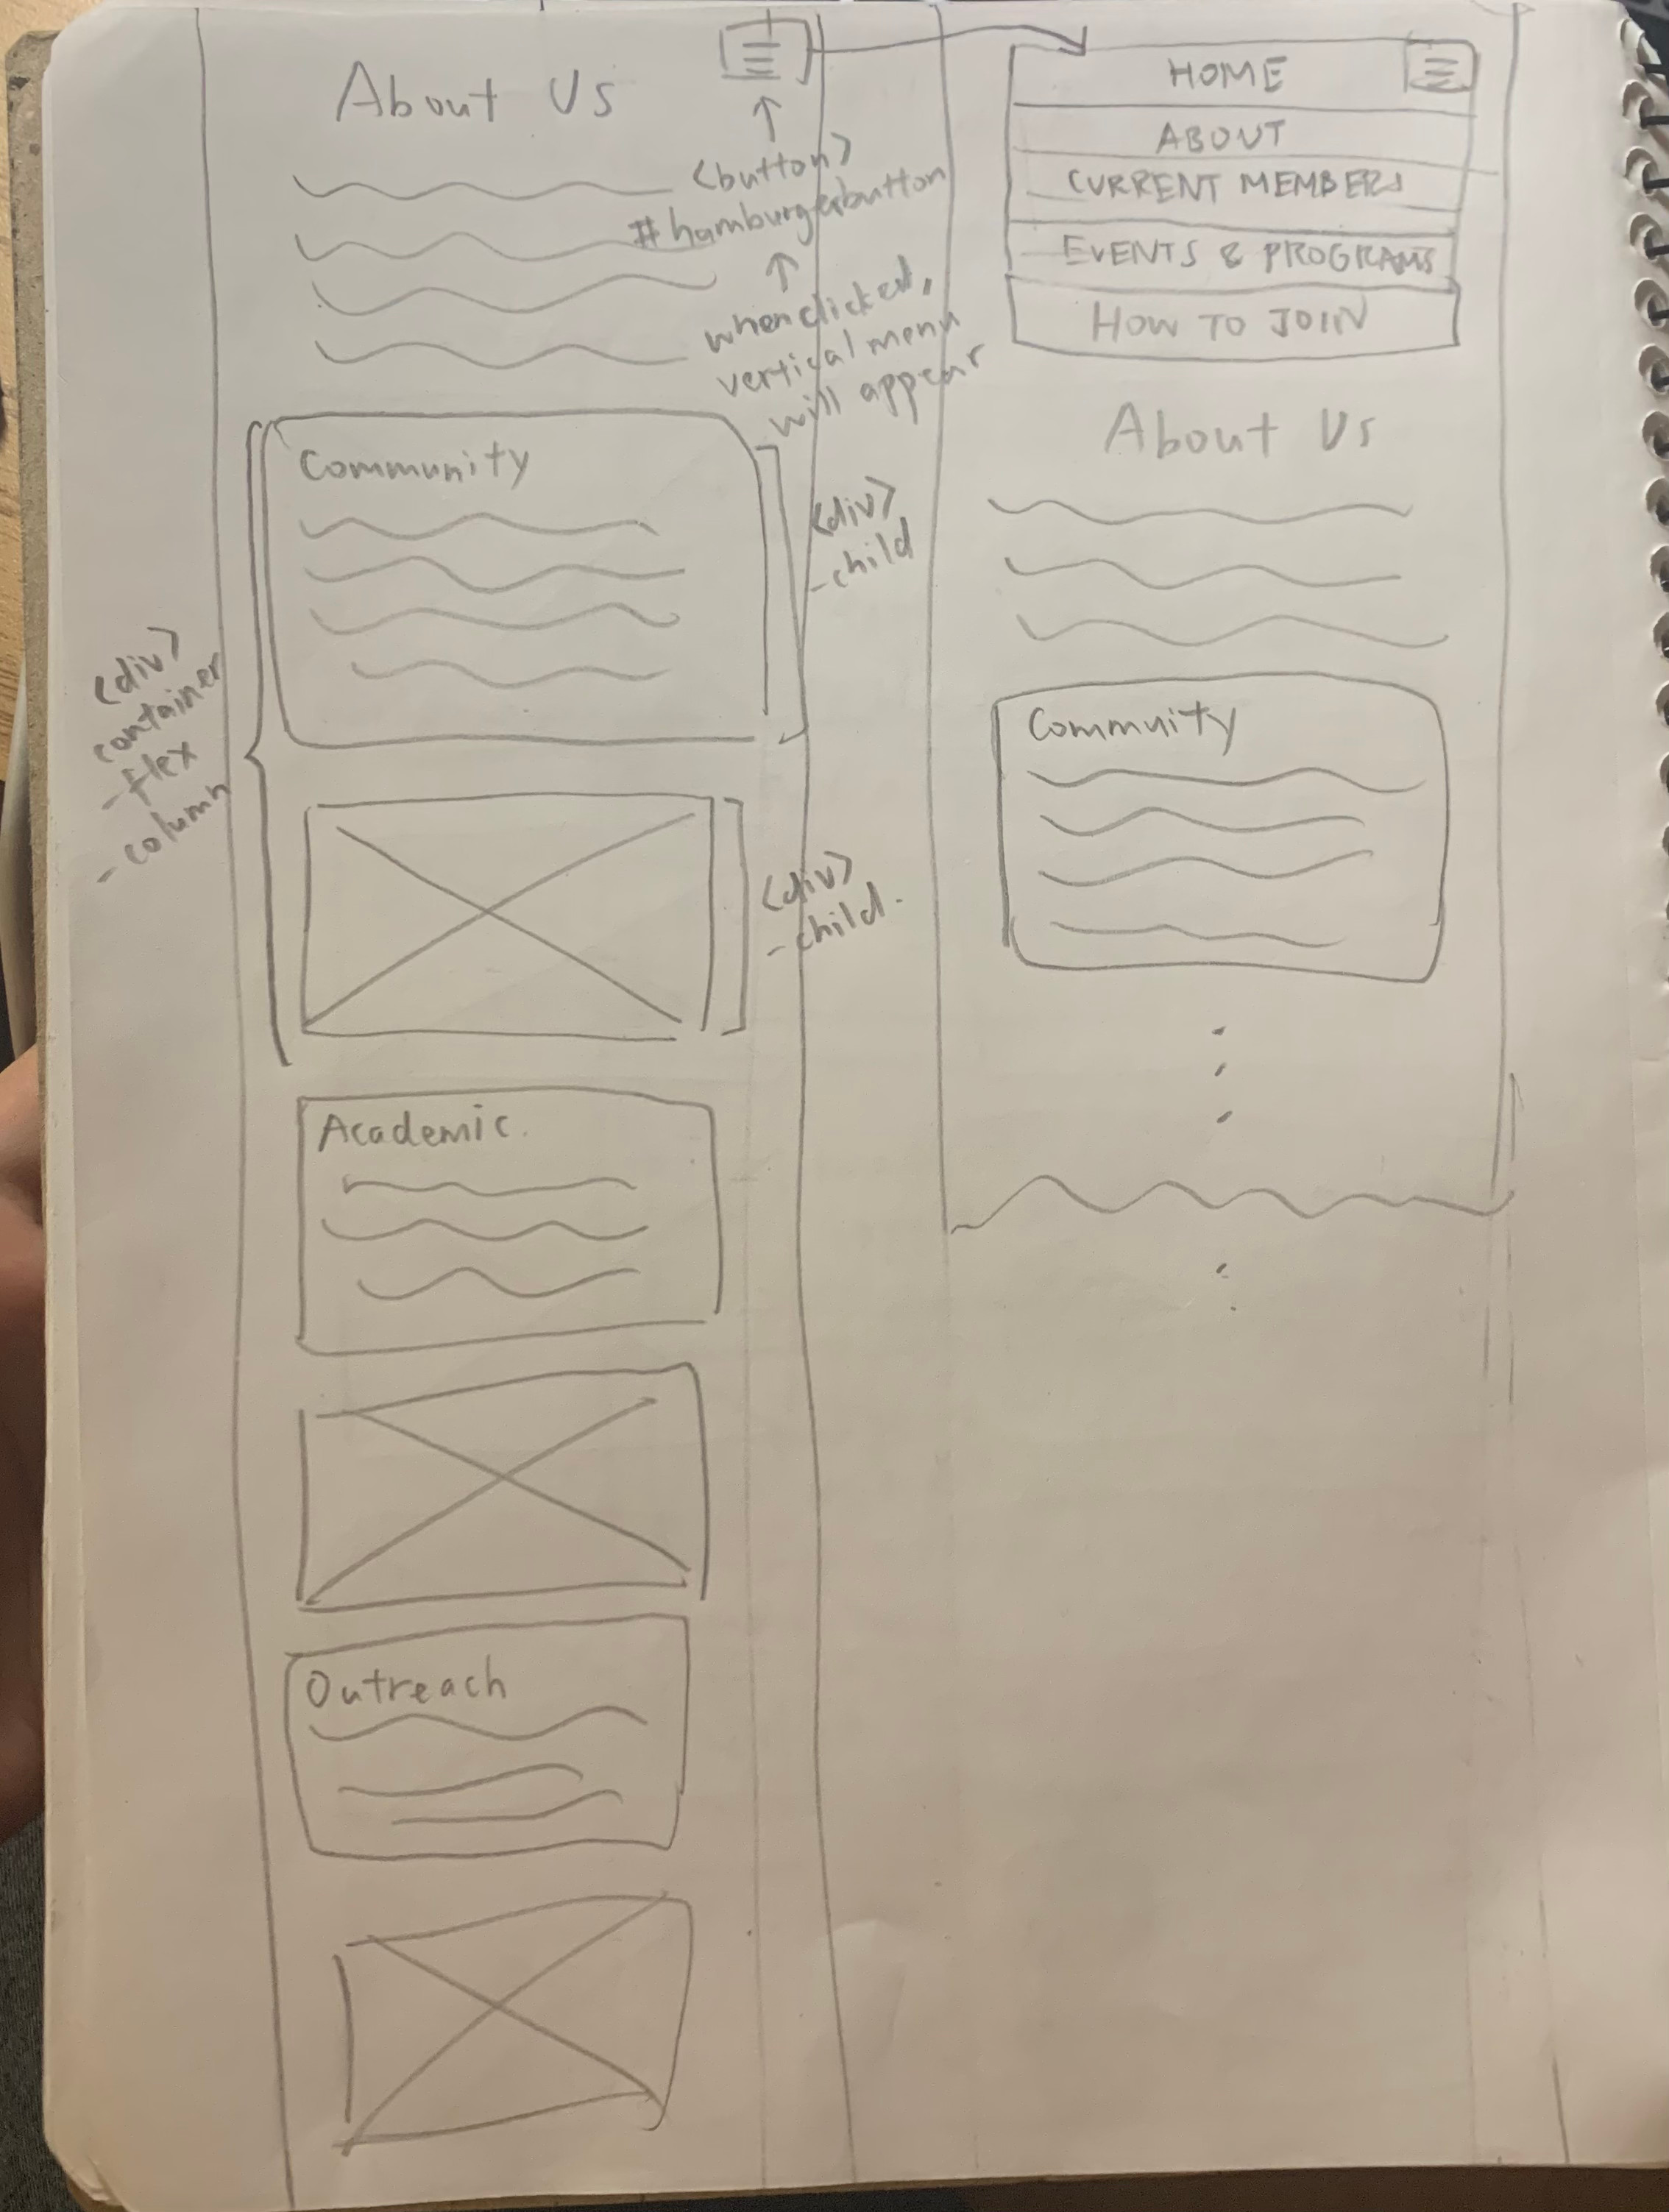 About Us
<button>
#hamburgerbutton
when clicked,
vertical menu
will appear
Community
<div>
-child
<div>
container
-flex
-column
<div>
-child.
Academic.
Outreach
HOME
ABOUT
CURRENT MEMBERS
EVENTS & PROGRAMS
HOW TO JOIN
About Us
Commuity